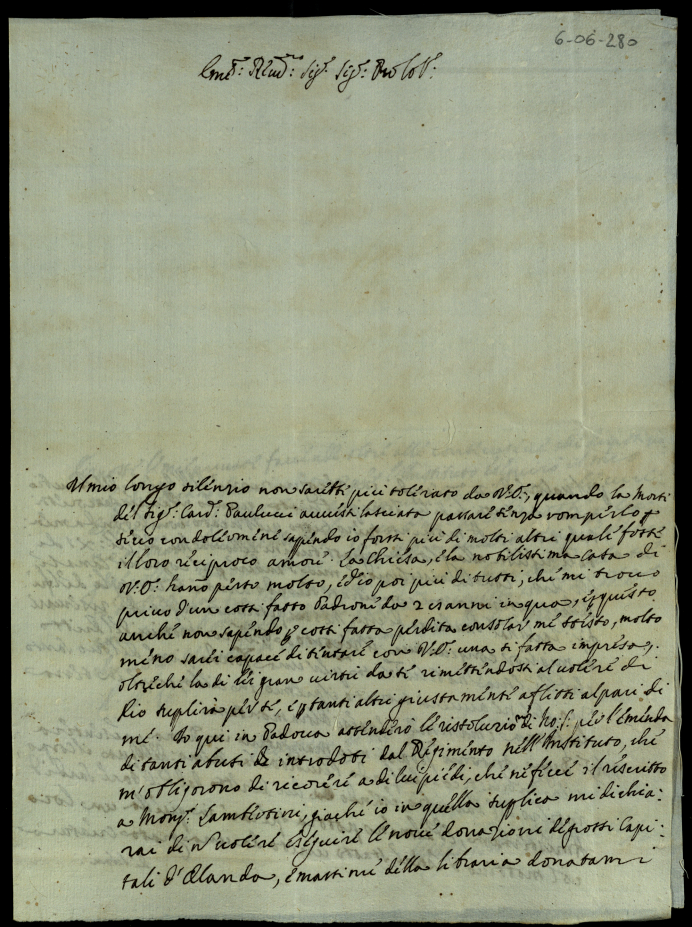 6-06-280
Em.o: Rev.mo: Sig.r: Sig.r: Pro Col.mo:
Il mio longo silenzio non sarebbi più tolerato da V.E., quando la morti
del Sig.r: Card.l Paulucci avessi lasciata passare senza romperlo, e
seco condolermene sapendo io forsi più di molti altri quale fossi
il loro reciproco amore. La Chiesa, e la nobilissima Casa di
V.E: hano perso molto, ed io poi più di tutti, che mi trovo
privo d'un cossi fatto Padrone da 21 anni in qua, e p questo
anche non sapendo p cossi fatta perdita consolar me stesso, molto
meno sarei capace di tentare con V.E: una si fatta impresa,
oltreche la di lei gran virtù da se rimettendosi al volere di
Dio suplirà per se, e p tanti altri giustamente aflitti al pari di
me. Io qui in Padova attenderò le risoluzio.ni di No: S. per l'emenda
di tanti abusi introdoti dal Regimento nell'Instituto, che
m'obligorono di ricorere a di lui piedi, che ne fece il rescritto
a Mons.r Lambertini, giache io in quella suplica mi dichia:
rai di voler eseguire le nove donazioni de grossi Capi:
tali d'Olanda, e massime della libraria donatami